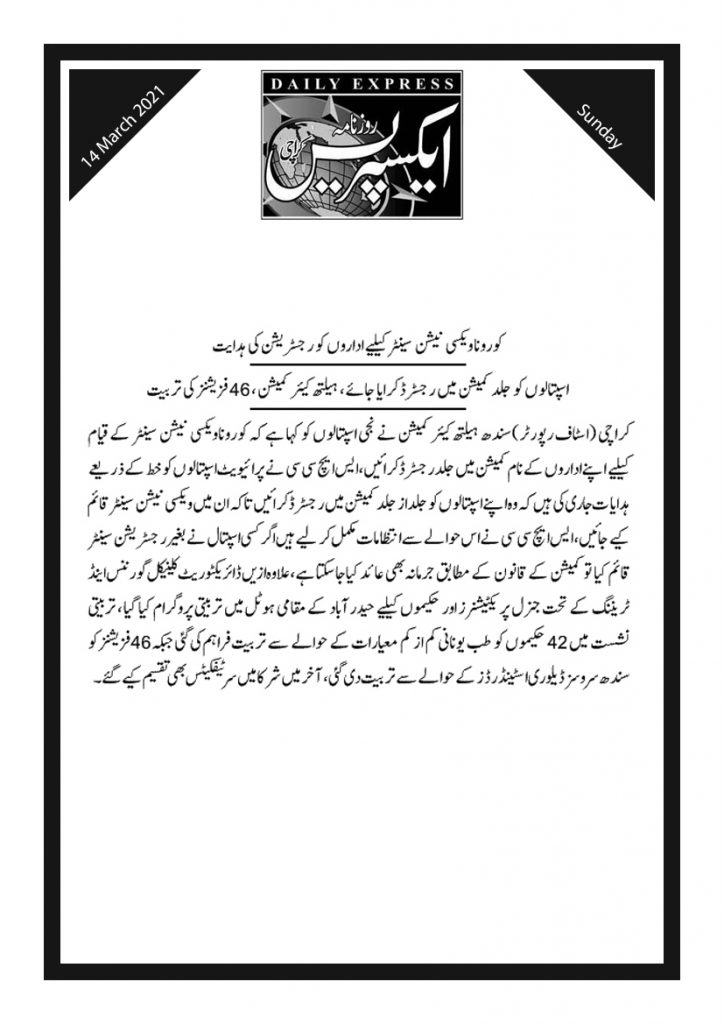 14 March 2021
Sunday
DAILY EXPRESS
روزنامہ
ایکسپریس
کراچی
کورونا ویکسی نیشن سینٹر کیلیے اداروں کو رجسٹریشن کی ہدایت
اسپتالوں کو جلد کمیشن میں رجسٹرڈ کرایا جائے، ہیلتھ کیئر کمیشن، 46 فزیشنز کی تربیت
کراچی (اسٹاف رپورٹر) سندھ ہیلتھ کیئر کمیشن نے نجی اسپتالوں کو کہا ہے کہ کورونا ویکسی نیشن سینٹر کے قیام
کیلیے اپنے اداروں کے نام کمیشن میں جلد رجسٹرڈ کرائیں، ایس ایچ سی سی نے پرائیویٹ اسپتالوں کو خط کے ذریعے
ہدایات جاری کی ہیں کہ وہ اپنے اسپتالوں کو جلد از جلد کمیشن میں رجسٹرڈ کرائیں تاکہ ان میں ویکسی نیشن سینٹر قائم
کیے جائیں، ایس ایچ سی سی نے اس حوالے سے انتظامات مکمل کر لیے ہیں اگر کسی اسپتال نے بغیر رجسٹریشن سینٹر
قائم کیا تو کمیشن کے قانون کے مطابق جرمانہ بھی عائد کیا جاسکتا ہے، علاوہ ازیں ڈائریکٹوریٹ کلینیکل گورننس اینڈ
ٹریننگ کے تحت جنرل پریکٹیشنرز اور حکیموں کیلیے حیدر آباد کے مقامی ہوٹل میں تربیتی پروگرام کیا گیا، تربیتی
نشست میں 42 حکیموں کو طب یونانی کم از کم معیارات کے حوالے سے تربیت فراہم کی گئی جبکہ 46 فزیشنز کو
سندھ سروسز ڈیلوری اسٹینڈرڈز کے حوالے سے تربیت دی گئی، آخر میں شرکا میں سرٹیفکیٹس بھی تقسیم کیے گئے۔